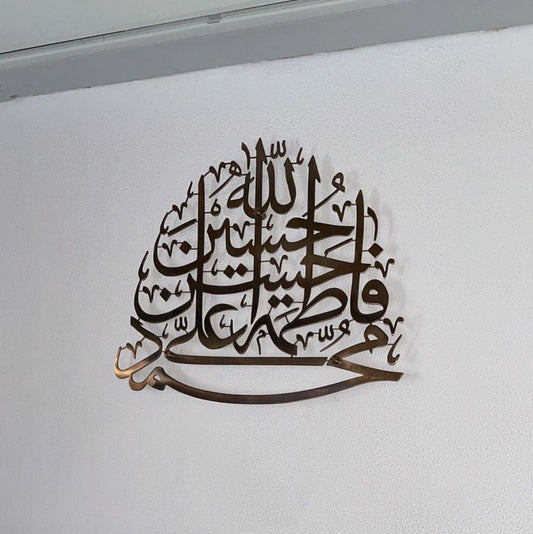 الله
حسين
الحسن
فاطمة علي
محمد